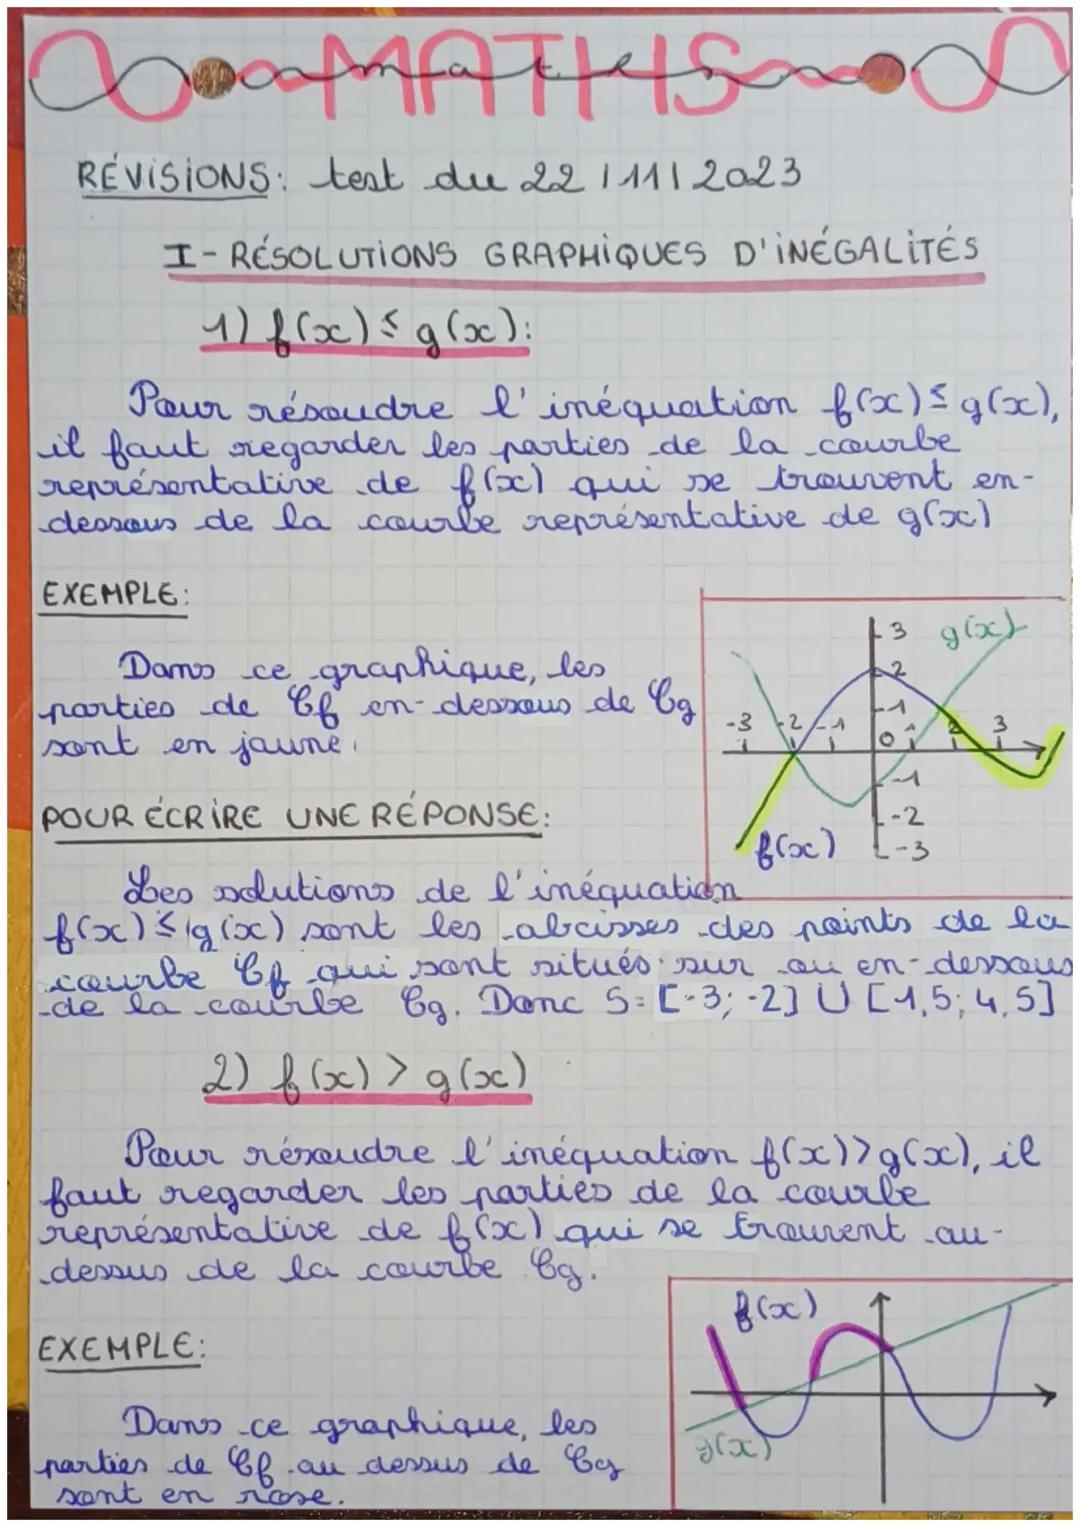 MATHS
maths
RÉVISIONS: test du 22/11/2023
I- RÉSOLUTIONS GRAPHIQUES D'INÉGALITÉS
1) f(x) ≤ g(x):
Pour résoudre l'inéquation f(x) ≤ g(x),
il faut regarder les parties de la courbe
représentative de f(x) qui se trouvent en-
dessous de la courbe représentative de g(x)
EXEMPLE:
Dans ce graphique, les
parties de Cf en-dessous de Cg
sont en jaune.
3 g(x)
2
1
-3 -2 -1 0 1 2 3
-1
-2
f(x) -3
POUR ÉCRIRE UNE RÉPONSE:
Les solutions de l'inéquation
f(x) ≤ g(x) sont les abcisses des points de la
courbe Cf qui sont situés sur ou en-dessous
de la courbe Cg. Donc S= [-3; -2] U [1,5; 4,5]
2) f(x) > g(x)
Pour résoudre l'inéquation f(x)>g(x), il
faut regarder les parties de la courbe
représentative de f(x) qui se trouvent au-
dessus de la courbe Cg.
EXEMPLE:
Dans ce graphique, les
parties de Cf au dessus de Cg
sont en rose.
f(x)
g(x)